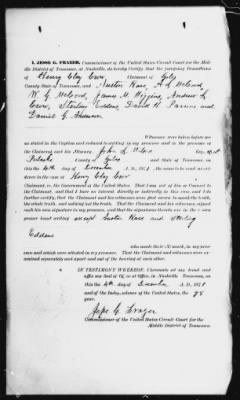 I, JESSE G. FRAZER, Commissioner of the United States Circuit Court for the
Middle District of Tennessee, at Nashville, do hereby certify that the foregoing depositions
of Henry Clay Ezell, Claimant of Giles
County State of Tennessee, and Austin Rose, A. J. McLeod
W. G. McLeod, James M. Higgins, Andrew J.
Ezell, Sterling Eddens, David H. Parsons and
Daniel G. Anderson
Witnesses were taken before me
as stated in the Caption and reduced to writing in my presence and in the presence of
the Claimant and his Attorney, John
Pulaski County of Giles and State of Tennessee, on
this the 4th day of December A. D., 187, the same to be used as evi-
dence in the case of Henry Clay Ezell
Claimant, vs. the Government of the United States. That I am not of kin or Counsel to
the Claimant, and that I have no interest, directly or indirectly in this case, and I do
further certify, that the Claimant and his witnesses were first sworn to speak the truth,
the whole truth, and nothing but the truth. That the Claimant and his witnesses, signed
each his own signature in my presence, and that the signatures thereto are in the own
proper hand writing except Austin Rose and Sterling
Eddens
who made their mark, in my pres-
ence and which were attested in my presence. That the Claimant and witnesses were ex-
amined separately and apart and out of the hearing of each other.
IN TESTIMONY WHEREOF, I hereunto set my hand and
affix my Seal of Of.ce at Office, in Nashville Tennessee, on
this the 4th day of December A. D., 187
and of the Indep.ndence of the United States, the 98
year.
Jesse G. Frazer
Commissioner of the United States Circuit Court for the
Middle District of Tennessee.